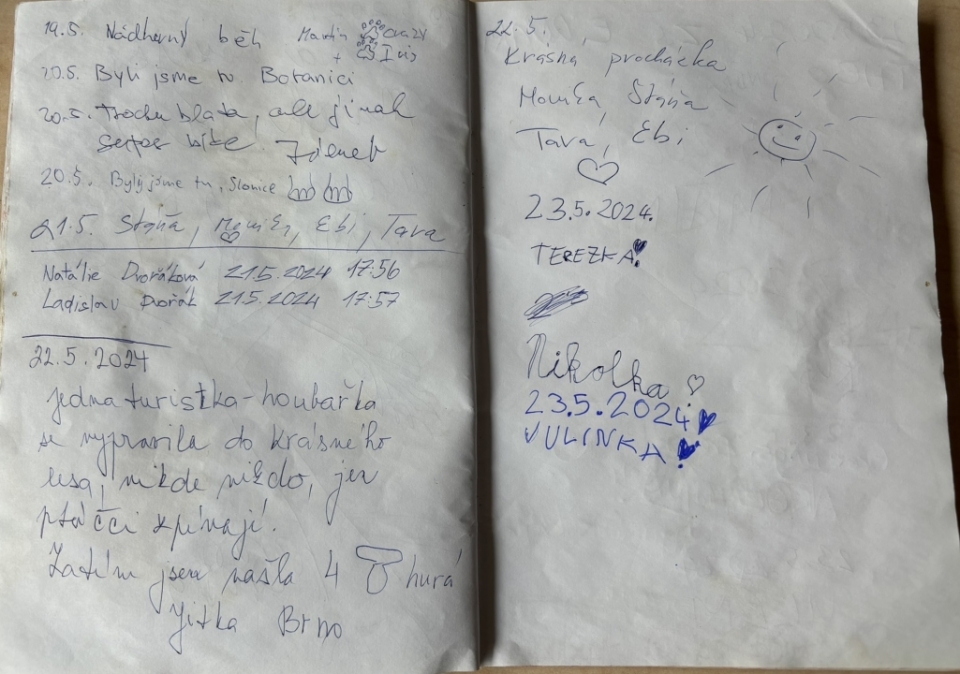 19.5. Nádherný běh Martin
+ Iris
20.5. Byli jsme tu Botanici
20.5. Trochu blata, ale jinak
Zdeneb
20.5. Byly jsme tu, Slonice
21.5. Stáňa, Monika, Ebi, Tara
Natálie Dvořáková 21.5.2024 17:56
Ladislav Dvořák 21.5.2024 17:57
22.5.2024
Jedna turistka-houbařka
se vypravila do krásného
lesa, nikde nikdo, jen
ptáčci zpívají.
Zatím jsem našla 4 hurá
Jitka Brno
22.5.
Krásná procházka
Monika, Stáňa
Tara, Ebi
23.5.2024.
TEREZKA!
Nikolka
23.5.2024
JULINKA!